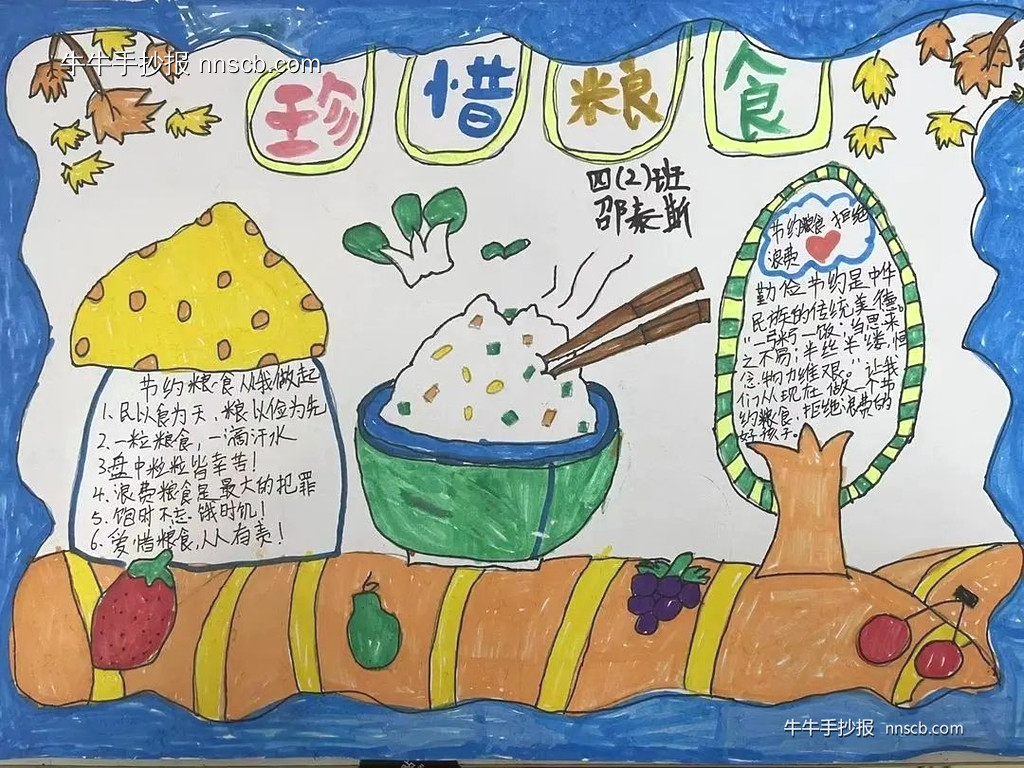 牛牛手抄报 nnscb.com
珍惜粮食
四(2)班
邵泰斯
节约粮食 拒绝
浪费
勤俭节约是中华
民族的传统美德。
"一粥一饭,当思来
之不易;半丝半缕,恒
念物力维艰。"让我
们从现在做一个节
约粮食,拒绝浪费的
好孩子。
节约粮食从我做起
1.民以食为天,粮以俭为先
2.一粒粮食,一滴汗水
3.盘中粒粒皆辛苦!
4.浪费粮食是最大的犯罪
5.饱时不忘饿时饥!
6.爱惜粮食,人人有责!
牛牛手抄报 nnscb.com